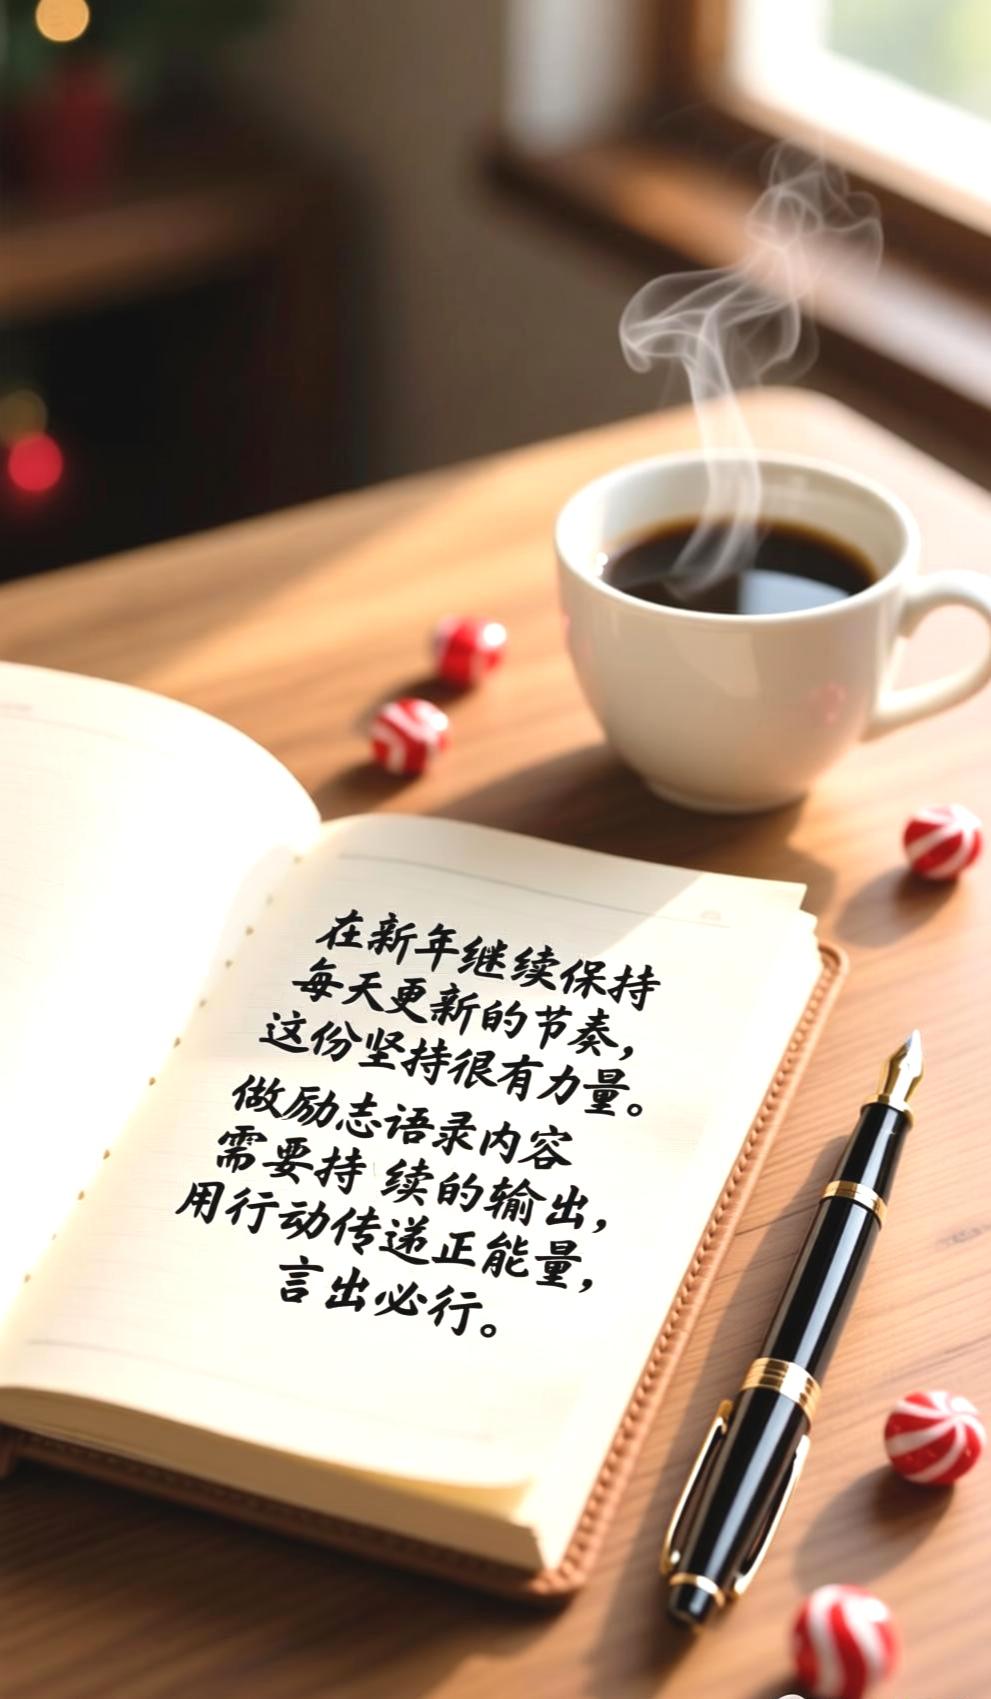 在新年继续保持
每天更新的节奏，
这份坚持很有力量。
做励志语录内容
需要持 续的输出，
用行动传递正能量，
言出必行。